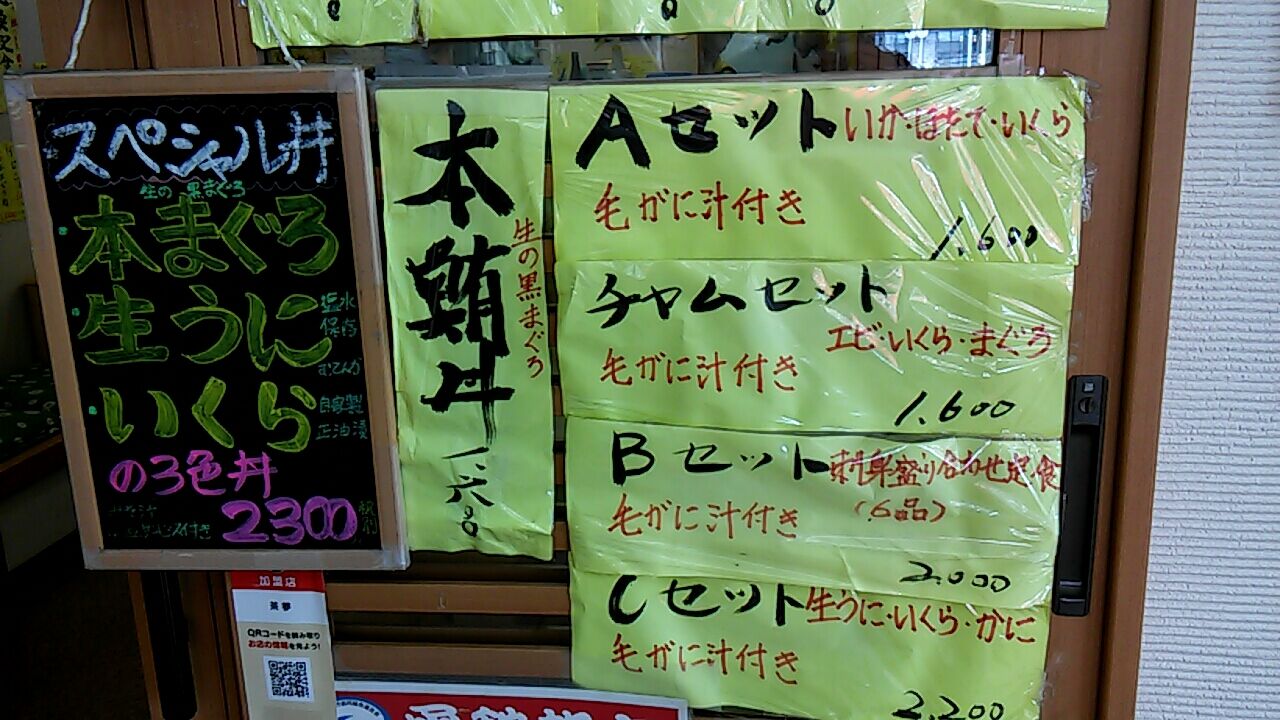 スペシャル丼
生の黒まぐろ
本まぐろ
生うに
塩水
保存
むてんか
いくら
自家製
正油漬
の3色丼
2300
税別
本鮪丼 一六〇〇
生の黒まぐろ
Aセット いか・ほたて・いくら
毛がに汁付き
1.600
チャムセット
エビ・いくら・まぐろ
毛がに汁付き
1.600
Bセット 刺身盛り合わせ定食
毛がに汁付き (6品)
2.000
Cセット 生うに・いくら・かに
毛がに汁付き
2.200
加盟店
茶夢
QRコードを読み取り
お店の情報を見よう!